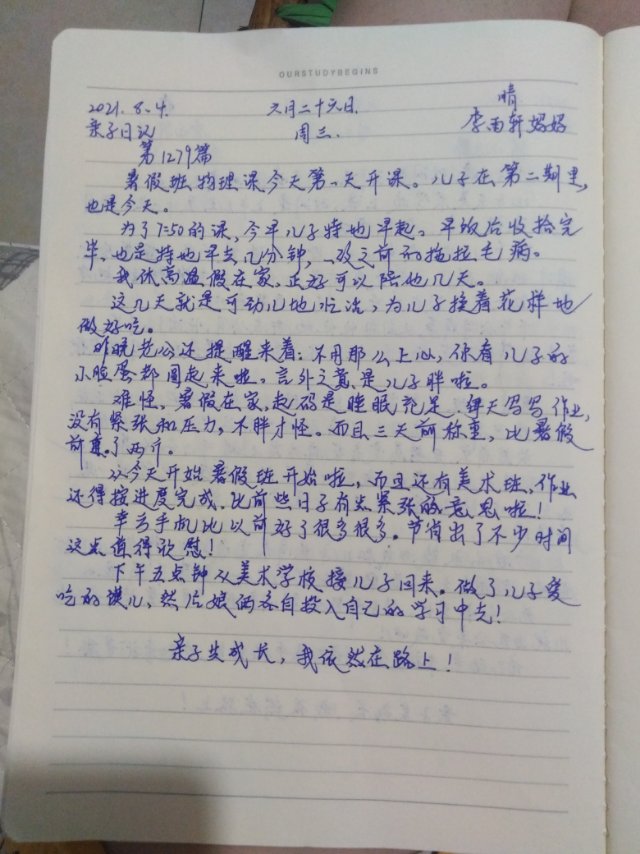 OURSTUDYBEGINS
2021.8.4. 六月二十六日. 晴
亲子日记 周三. 李雨轩妈妈
第1279篇
暑假班物理课今天第一天开课。儿子在第二期里,
也是今天。
为了7:50的课,今早儿子特地早起。早饭后收拾完
毕,也是特地早去几分钟,一改之前的拖拉毛病。
我休高温假在家,正好可以陪他几天。
这几天就是可劲儿地吃活,为儿子换着花样地
做好吃。
昨晚老公还提醒来着:不用那么上心,你看儿子的
小脸蛋都圆起来啦。言外之意是儿子胖啦。
难怪,暑假在家,起码是睡眠充足.每天写写作业,
没有紧张和压力,不胖才怪。而且三天前称重,比暑假
前重了两斤。
从今天开始暑假班开始啦,而且还有美术班,作业
还得按进度完成.比前些日子有点紧张的意思啦!
幸亏手机比以前好了很多很多。节省出了不少时间
这点值得欣慰!
下午五点钟从美术学校接儿子回来。做了儿子爱
吃的,然后娘俩各自投入自己的学习中去!
亲子共成长,我依然在路上!